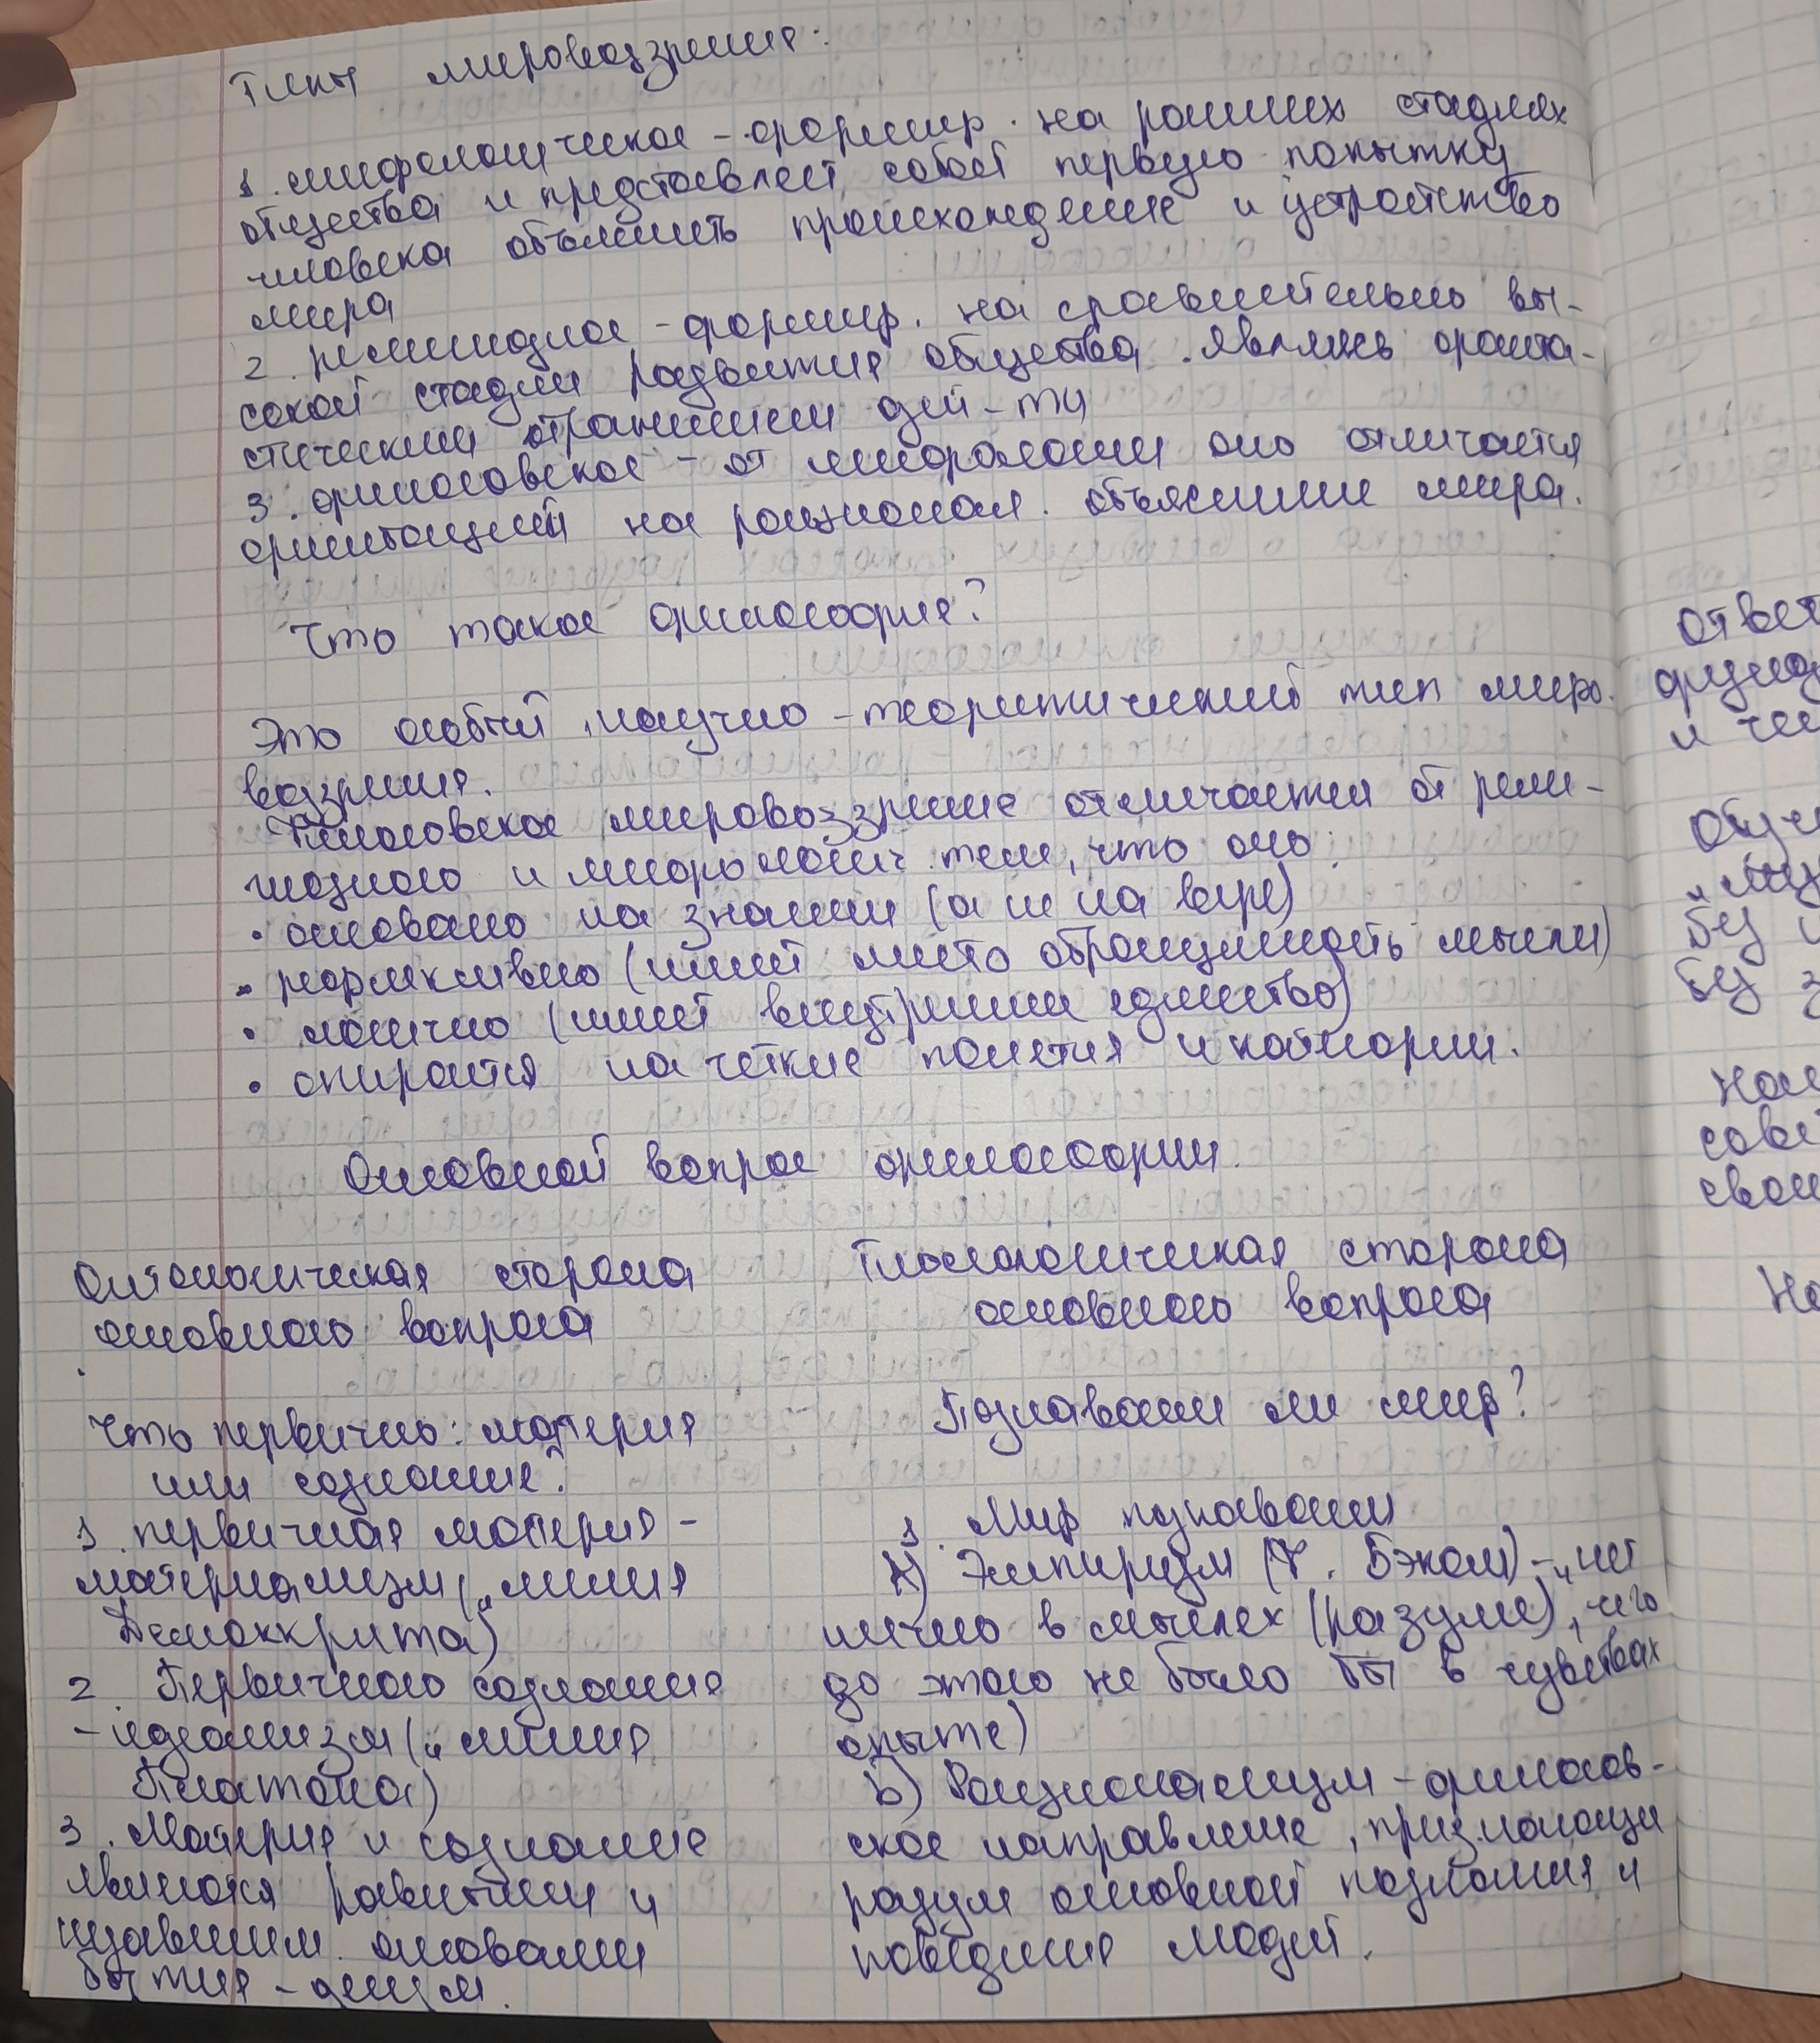 Типы мировоззрения:
1. мифологическое - формир. на ранних стадиях
общества и представляет собой первую попытку
человека объяснить происхождение и устройство
мира
2. религиозное - формир. на сравнительно вы-
сокой стадии развития общества. Являясь фанта-
стическим отражением дей-ти
3. философское - от мифологии оно отличается
ориентацией на рационал. объяснение мира.
Что такое философия?
Это особый, научно-теоритический тип миро.
воззрения.
Философское мировоззрение отличается от рели-
гиозного и мифологич. тем, что оно:
• основано на знании (а не на вере)
• рефлексивно (имеет место обращенность мысли)
• логично (имеет внутреннее единство)
• опирается на четкие понятия и категории.
Основной вопрос философии.
Онтологическая сторона
основного вопроса
Что первично: материя
или сознание?
1. первичная материя -
материализм („линия
Демоккрита)
2. Первичного сознание
- идеализм („линия
Платона)
3. Материя и сознание
являются равными и
независим. основами
бытия - дуализм.
Гносеологическая сторона
основного вопроса
Познаваем ли мир?
1. Мир познаваем
А) Эмпиризм (Ф. Бэкон) - „нет
ничего в мыслях (разуме), чего
до этого не было бы в чувствах
опыте)
b) Рационализм - философ-
ское направление, признающи
разум основной познания и
поведения людей.
Ответ
и чел